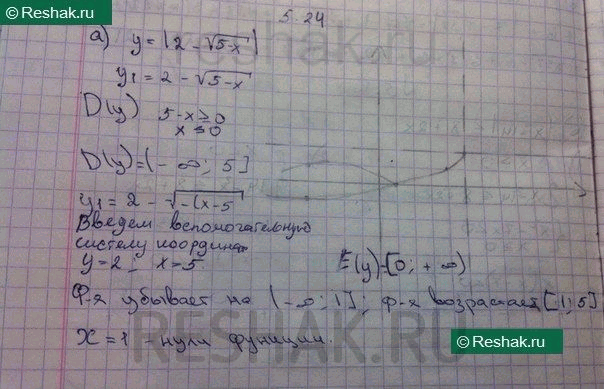 Reshak.ru
5.24
а) y = |2 - √5-x|
y₁ = 2 - √5-x
D(y) 5-x ≥ 0
x ≤ 0
D(y) = (-∞; 5]
y₁ = 2 - √-(x-5
Введем вспомогательную
систему координат
y=2 x=5 E(y)-[0; +∞)
Ф-я убывает на (-∞; 1]; ф-я возрастает [1; 5]
X = 1 - нули функции.
RESHAK.RU
Reshak.ru